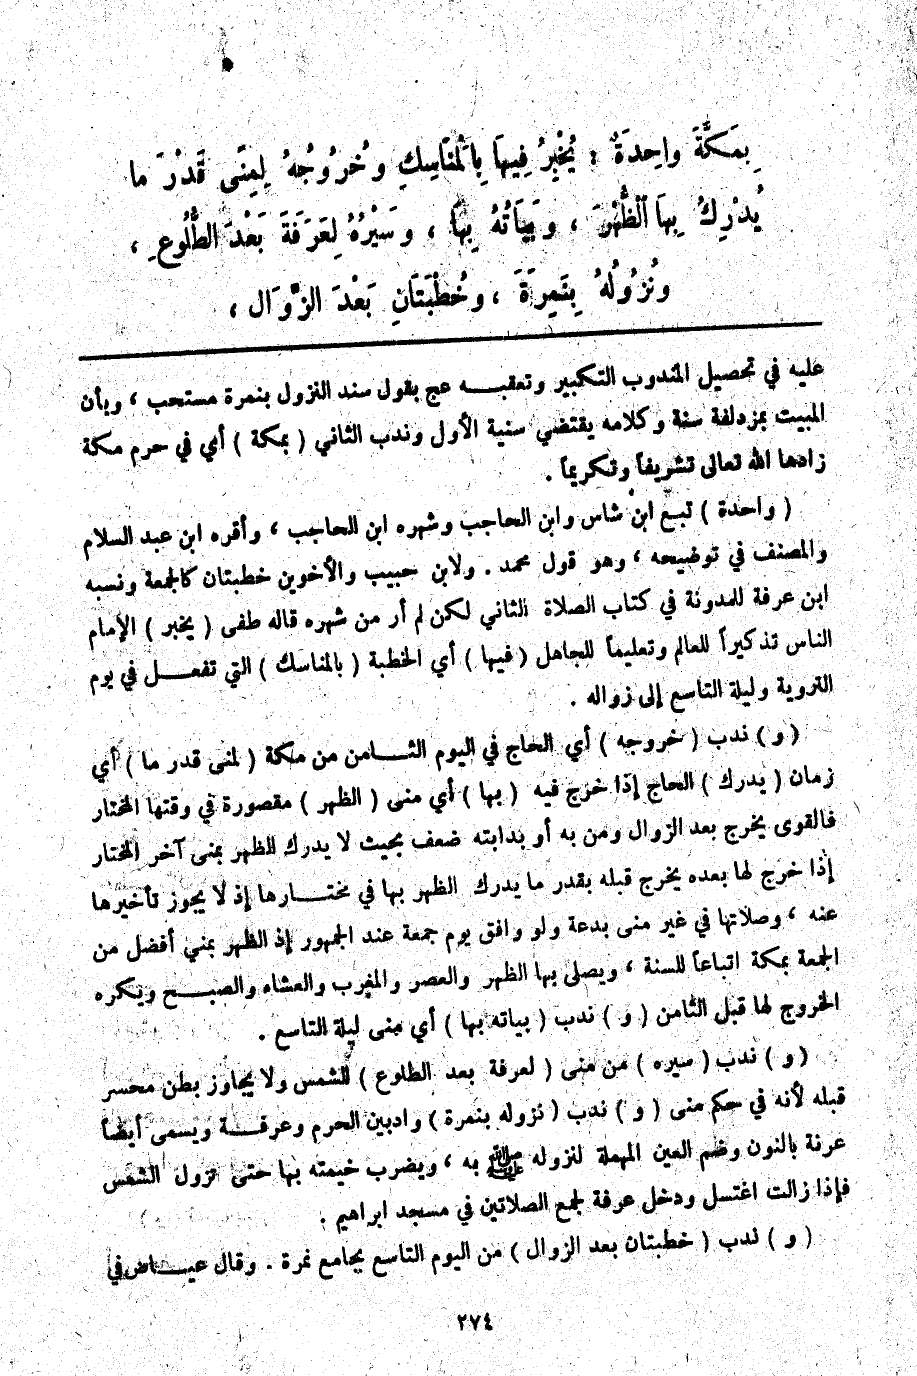 بِمَكَّةَ واحِدَةٌ : يُخْبِرُ فِيهَا بِالْمَنَاسِكِ وخُرُوجُهُ لِمِنًى قَدْرَ ما
يُدْرِكُ بِهَا الظُّهْرَ ، وبَيَاتُهُ بِهَا ، وسَيْرُهُ لِعَرَفَةَ بَعْدَ الطُّلُوعِ ،
ونُزُولُهُ بِنَمِرَةَ ، وخُطْبَتَانِ بَعْدَ الزَّوَالِ ،
عليه في تحصيل المندوب التكبير وتعقبه عج بقول سند النزول بنمرة مستحب ، وبأن
المبيت بمزدلفة سنة وكلامه يقتضي سنية الأول وندب الثاني ( بمكة ) أي في حرم مكة
زادها الله تعالى تشريفاً وتكريماً .
( واحدة ) تبع ابن شاس وابن الحاجب وشهره ابن الحاجب ، وأقره ابن عبد السلام
والمصنف في توضيحه ، وهو قول محمد . ولابن حبيب والأخوين خطبتان كالجمعة ونسبه
ابن عرفة للمدونة في كتاب الصلاة الثاني لكن لم أر من شهره قاله طفى ( يخبر ) الإمام
الناس تذكيراً للعالم وتعليماً للجاهل ( فيها ) أي الخطبة ( بالمناسك ) التي تفعل في يوم
التروية وليلة التاسع إلى زواله .
( و ) ندب ( خروجه ) أي الحاج في اليوم الثامن من مكة ( لمنى قدر ما ) أي
زمان ( يدرك ) الحاج إذا خرج فيه ( بها ) أي منى ( الظهر ) مقصورة في وقتها المختار
فالقوى يخرج بعد الزوال ومن به أو بدابته ضعف بحيث لا يدرك الظهر بمنى آخر المختار
إذا خرج لها بعده يخرج قبله بقدر ما يدرك الظهر بها في مختارها إذ لا يجوز تأخيرها
عنه ، وصلاتها في غير منى بدعة ولو وافق يوم جمعة عند الجمهور إذ الظهر بمنى أفضل من
الجمعة بمكة اتباعاً للسنة ، ويصلي بها الظهر والعصر والمغرب والعشاء والصبح ويكره
الخروج لها قبل الثامن ( و ) ندب ( بياته بها ) أي منى ليلة التاسع .
( و ) ندب ( سيره ) من منى ( لعرفة بعد الطلوع ) للشمس ولا يجاوز بطن محسر
قبله لأنه في حكم منى ( و ) ندب ( نزوله بنمرة ) وادبين الحرم وعرفة ويسمى أيضاً
عرنة بالنون وضم العين المهملة لنزوله ﷺ به ، ويضرب خيمته بها حتى تزول الشمس
فإذا زالت اغتسل ودخل عرفة لجمع الصلاتين في مسجد ابراهيم .
( و ) ندب ( خطبتان بعد الزوال ) من اليوم التاسع بجامع نمرة . وقال عياض في
٢٧٤